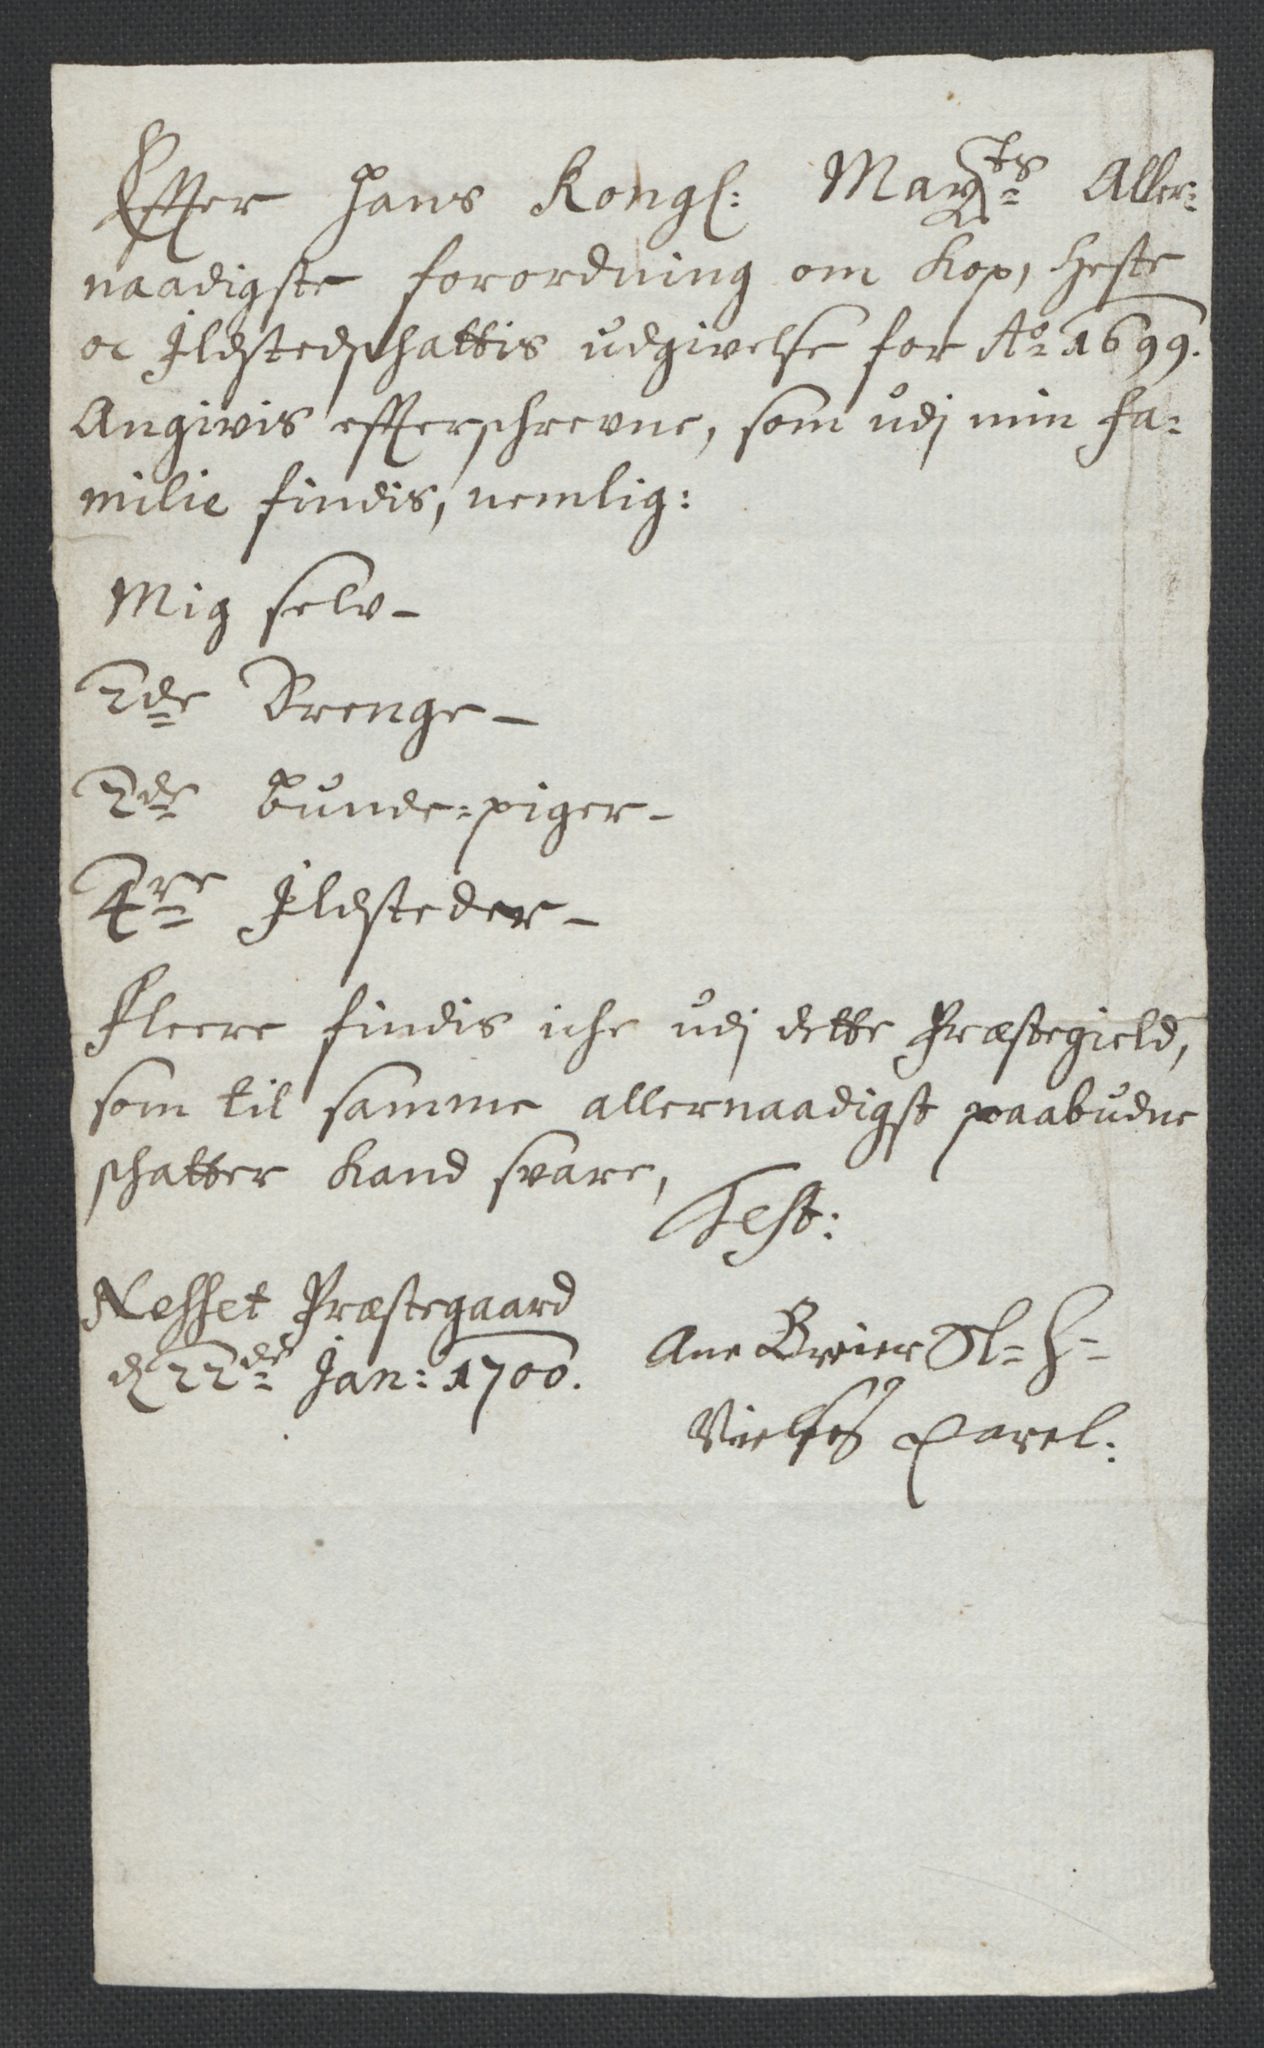 Effter Hans Kongl: May:ts Aller=
naadigste forordning om Kop, Heste
oc Ildstedschattis udgivelse for Ao 1699.
Angivis effterschrevne, som udj min fa=
milie findis, nemlig:
Mig selv-
2de Drenge-
2de bunde=piger-
4re Ildsteder-
Fleere findis iche udj dette Præstegield,
som til samme allernaadigst paabudne
schatter kand svare,
Test:
Nesset Præstegaard
d 22de Jan: 1700.
Ane Breier Sl= H=
Nielses